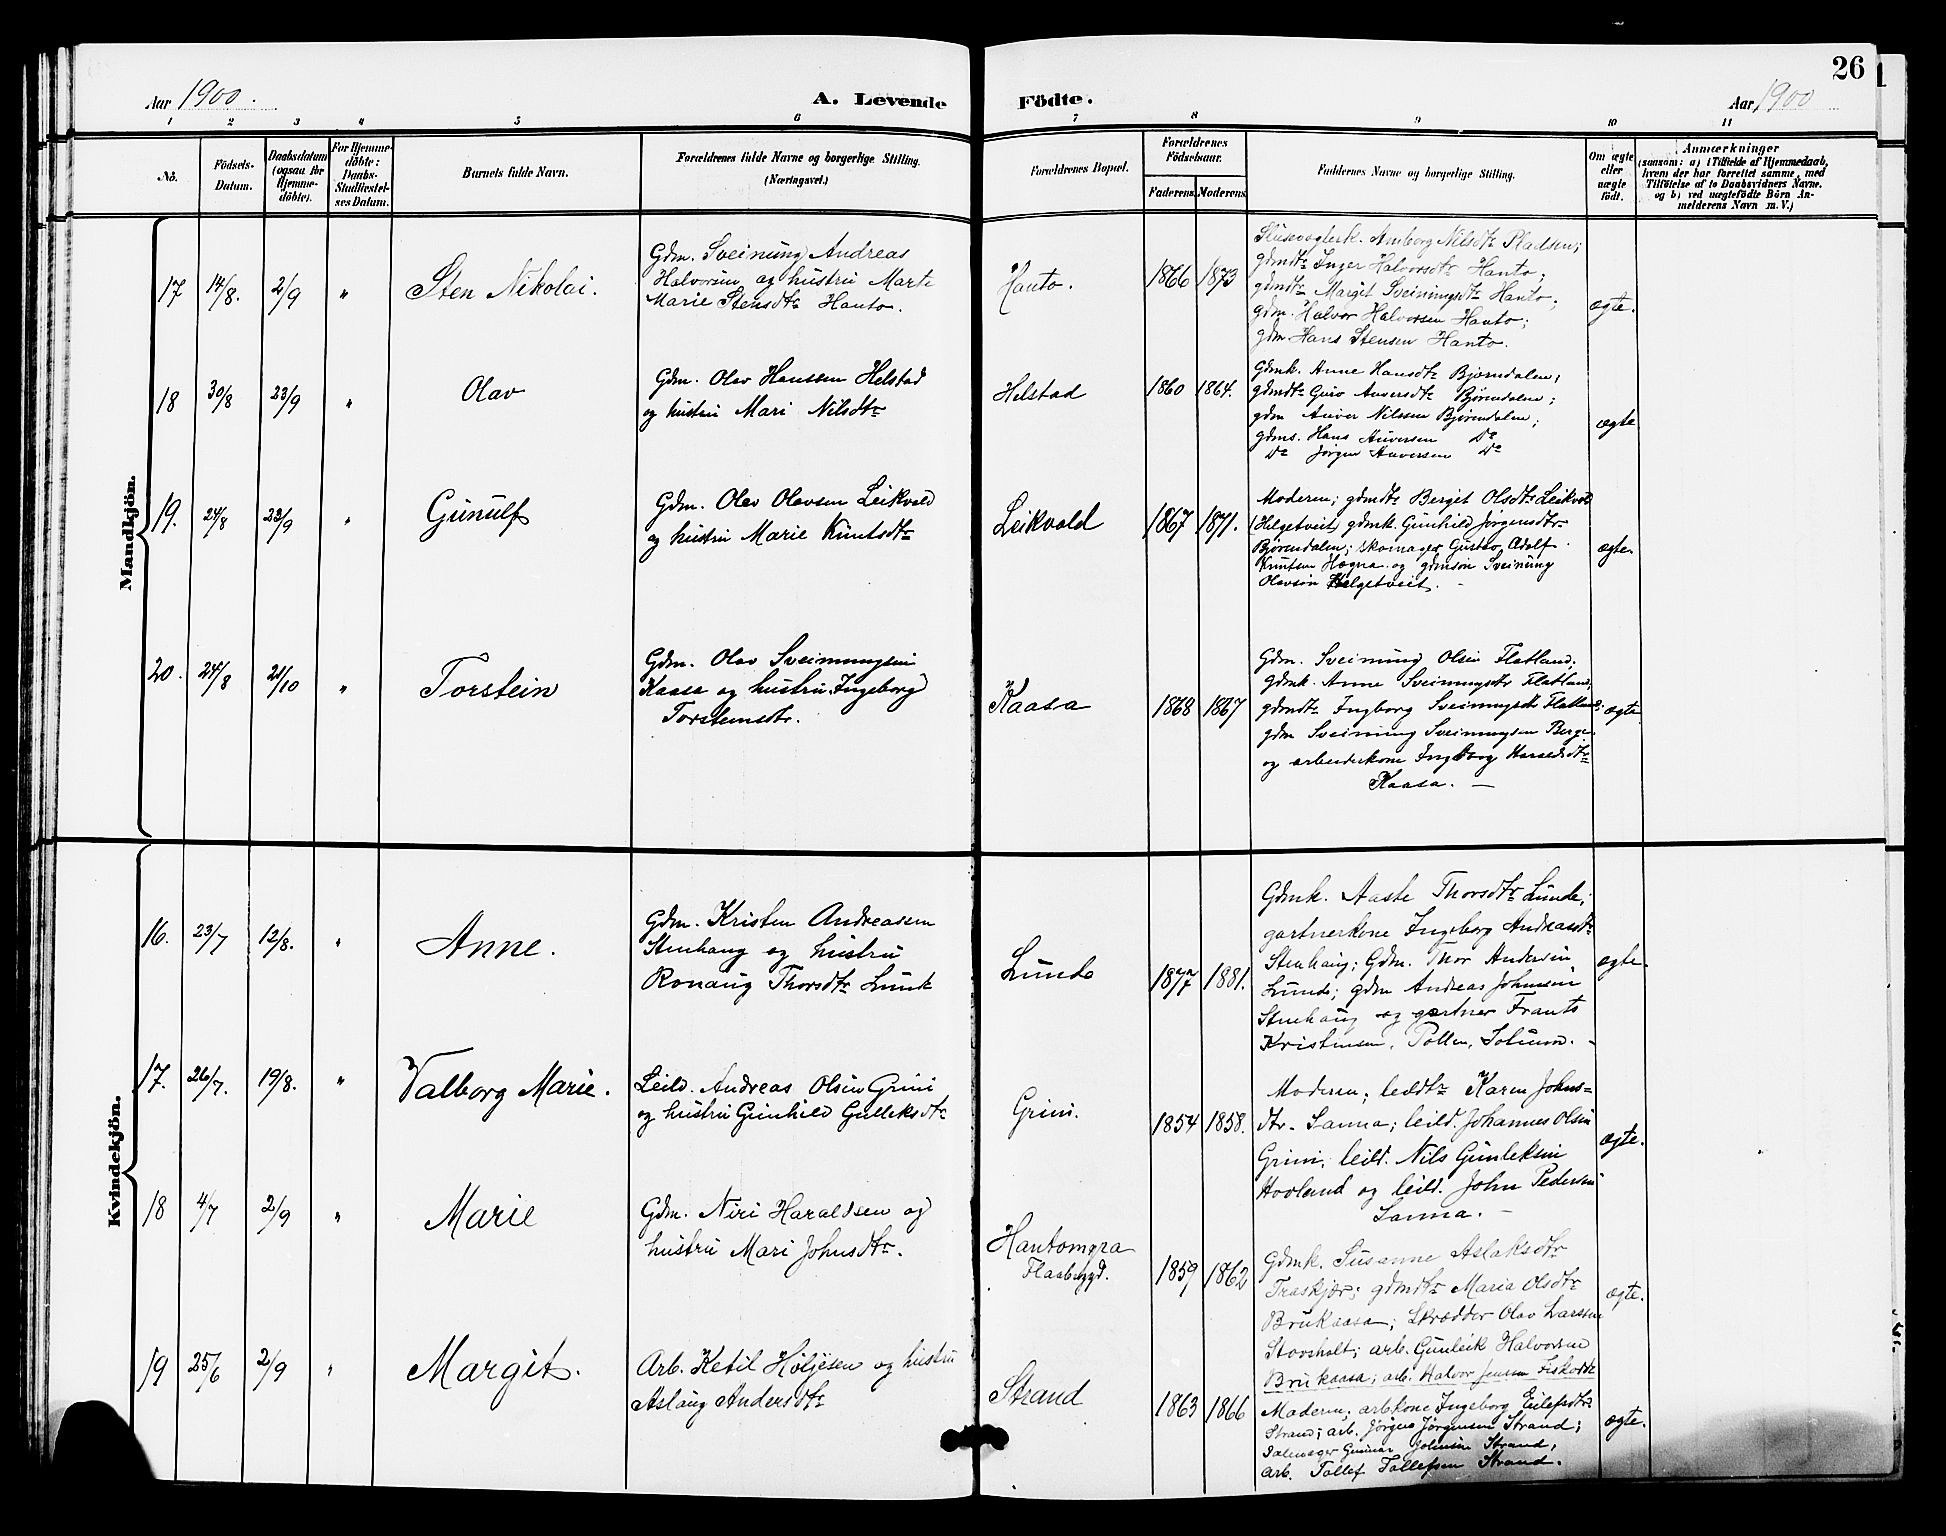 26
Aar 1900.
A. Levende Födte.
Aar 1900
1 2 3 4 5 6 7 8 9 10 11
No.
Födsels-
Datum.
Daabsdatum
(ogsaa for
Hjemme-
döbte).
For Hjemme-
döbte:
Daabs-
Stadfæstel-
ses Datum.
Barnets fulde Navn.
Forældrenes fulde Navne og borgerlige Stilling.
(Næringsvei.)
Forældrenes Bopæl.
Forældrenes
Födselsaar.
Faderens.
Moderens.
Faddernes Navne og borgerlige Stilling.
Om ægte
eller
uægte
født.
Anmærkninger
(saasom: a) i Tilfælde af Hjemmedaab,
hvem der har forrettet samme, med
Tilföielse af to Daabsvidners Navne.
og b) ved uægtefödte Börn An-
melderens Navn m. V.)
Mandkjön.
17 14/8. 2/9 "
Sten Nikolai.
Gdm. Sveinung Andreas
Halvorsen og hustru Marte
Marie Stensdtr Hanto.
Hanto.
1866 1873
Amborg Nilsdtr Pladsen;
gdmdtr Inger Halvorsdtr Hanto;
gdmdtr Margit Sveinungsdtr Hanto;
gdm. Halvor Halvorsen Hanto;
gdm. Hans Stensen Hanto.
ægte.
18 30/8 23/9 "
Olav
Gdm. Olav Hanssen Helstad
og hustru Mari Nilsdtr
Helstad
1860 1864.
Gdmk. Anne Hansdtr Bjørndalen;
gdmdtr Guro Auversdtr Bjørendalen;
gdm Auver Nilssen Bjørendalen;
gdms. Hans Auversen Do
Do Jørgen Auversen Do
ægte
19. 24/8 23/9 "
Gunulf
Gdm. Olav Olavsen Leikvold
og hustru Marie Knutsdtr
Leikvold
1867 1871.
Moderen; gdmdtr Berget Olsdtr Leikvold
(Helgetveit) gdmk. Gunhild Jørgensdtr
Bjørendalen; skomager Gustav Adolf
Knutsen Hægna og gdmsøn Sveinung
Olavson Helgetveit. -
ægte.
20. 24/8 21/10 "
Torstein
Gdm. Olav Sveinungsen
Kaasa og hustru Ingeborg
Torsteinsdtr.
Kaasa
1868 1867
Gdm. Sveinung Olsen Flatland;
gdmk. Anne Sveinungsdtr Flatland;
gdmdtr Ingborg Sveinungsdtr Flatland;
gdm Sveinung Sveinungsen Berge
og arbeiderkone Ingeborg
Kaasa. -
ægte
Kvindekjön.
16. 23/7 12/8. "
Anne.
Gdm. Kristen Andreassen
Stenhaug og hustru
Ronaug Thorsdtr Lunde
Lunde
1877 1881.
Gdmk. Aaste Thorsdtr Lunde;
gartnerkone Ingeborg Andreasdtr
Stenhaug; Gdm. Thor Andersen
Lunde; gdm Andreas Johnsen
Stenhaug og gartner Frants
Kristensen, Pollen, Solum. -
ægte.
17. 26/7. 19/8. "
Valborg Marie.
Leild. Andreas Olsen Grini
og hustru Gunhild Gulleksdtr
Grini.
1854 1858.
Moderen; leildtr Karen Johns-
dtr. Sanna; leild. Johannes Olsen
Grini; leild. Nils Gunleksen
Hovland og leild. John Pedersen
Sanna. -
ægte.
18 4/7 2/9 "
Marie
Gdm. Niri Haraldsen og
hustru Mari Johnsdtr.
Hantomyra
Flaabygd.
1859 1862
Gdmk. Susanne Aslaksdtr
Traskjær; gdmdtr Maria Olsdtr
Brukaasa; skrædder Olav Larssen
Stovsholt; arb. Gunleik Halvorsen
Brukaasa; arb. Halvor Jensen
ægte.
19 25/6 2/9 "
Margit.
Arb. Ketil Høljesen og hustru
Aslaug Andersdtr
Strand
1863 1866
Moderen; arbkone Ingeborg Eilefsdtr
Strand; arb. Jørgen Jørgensen Strand;
Salmager Gunnar Johnsen Strand;
arb. Tollef Tollefsen Strand.
ægte.